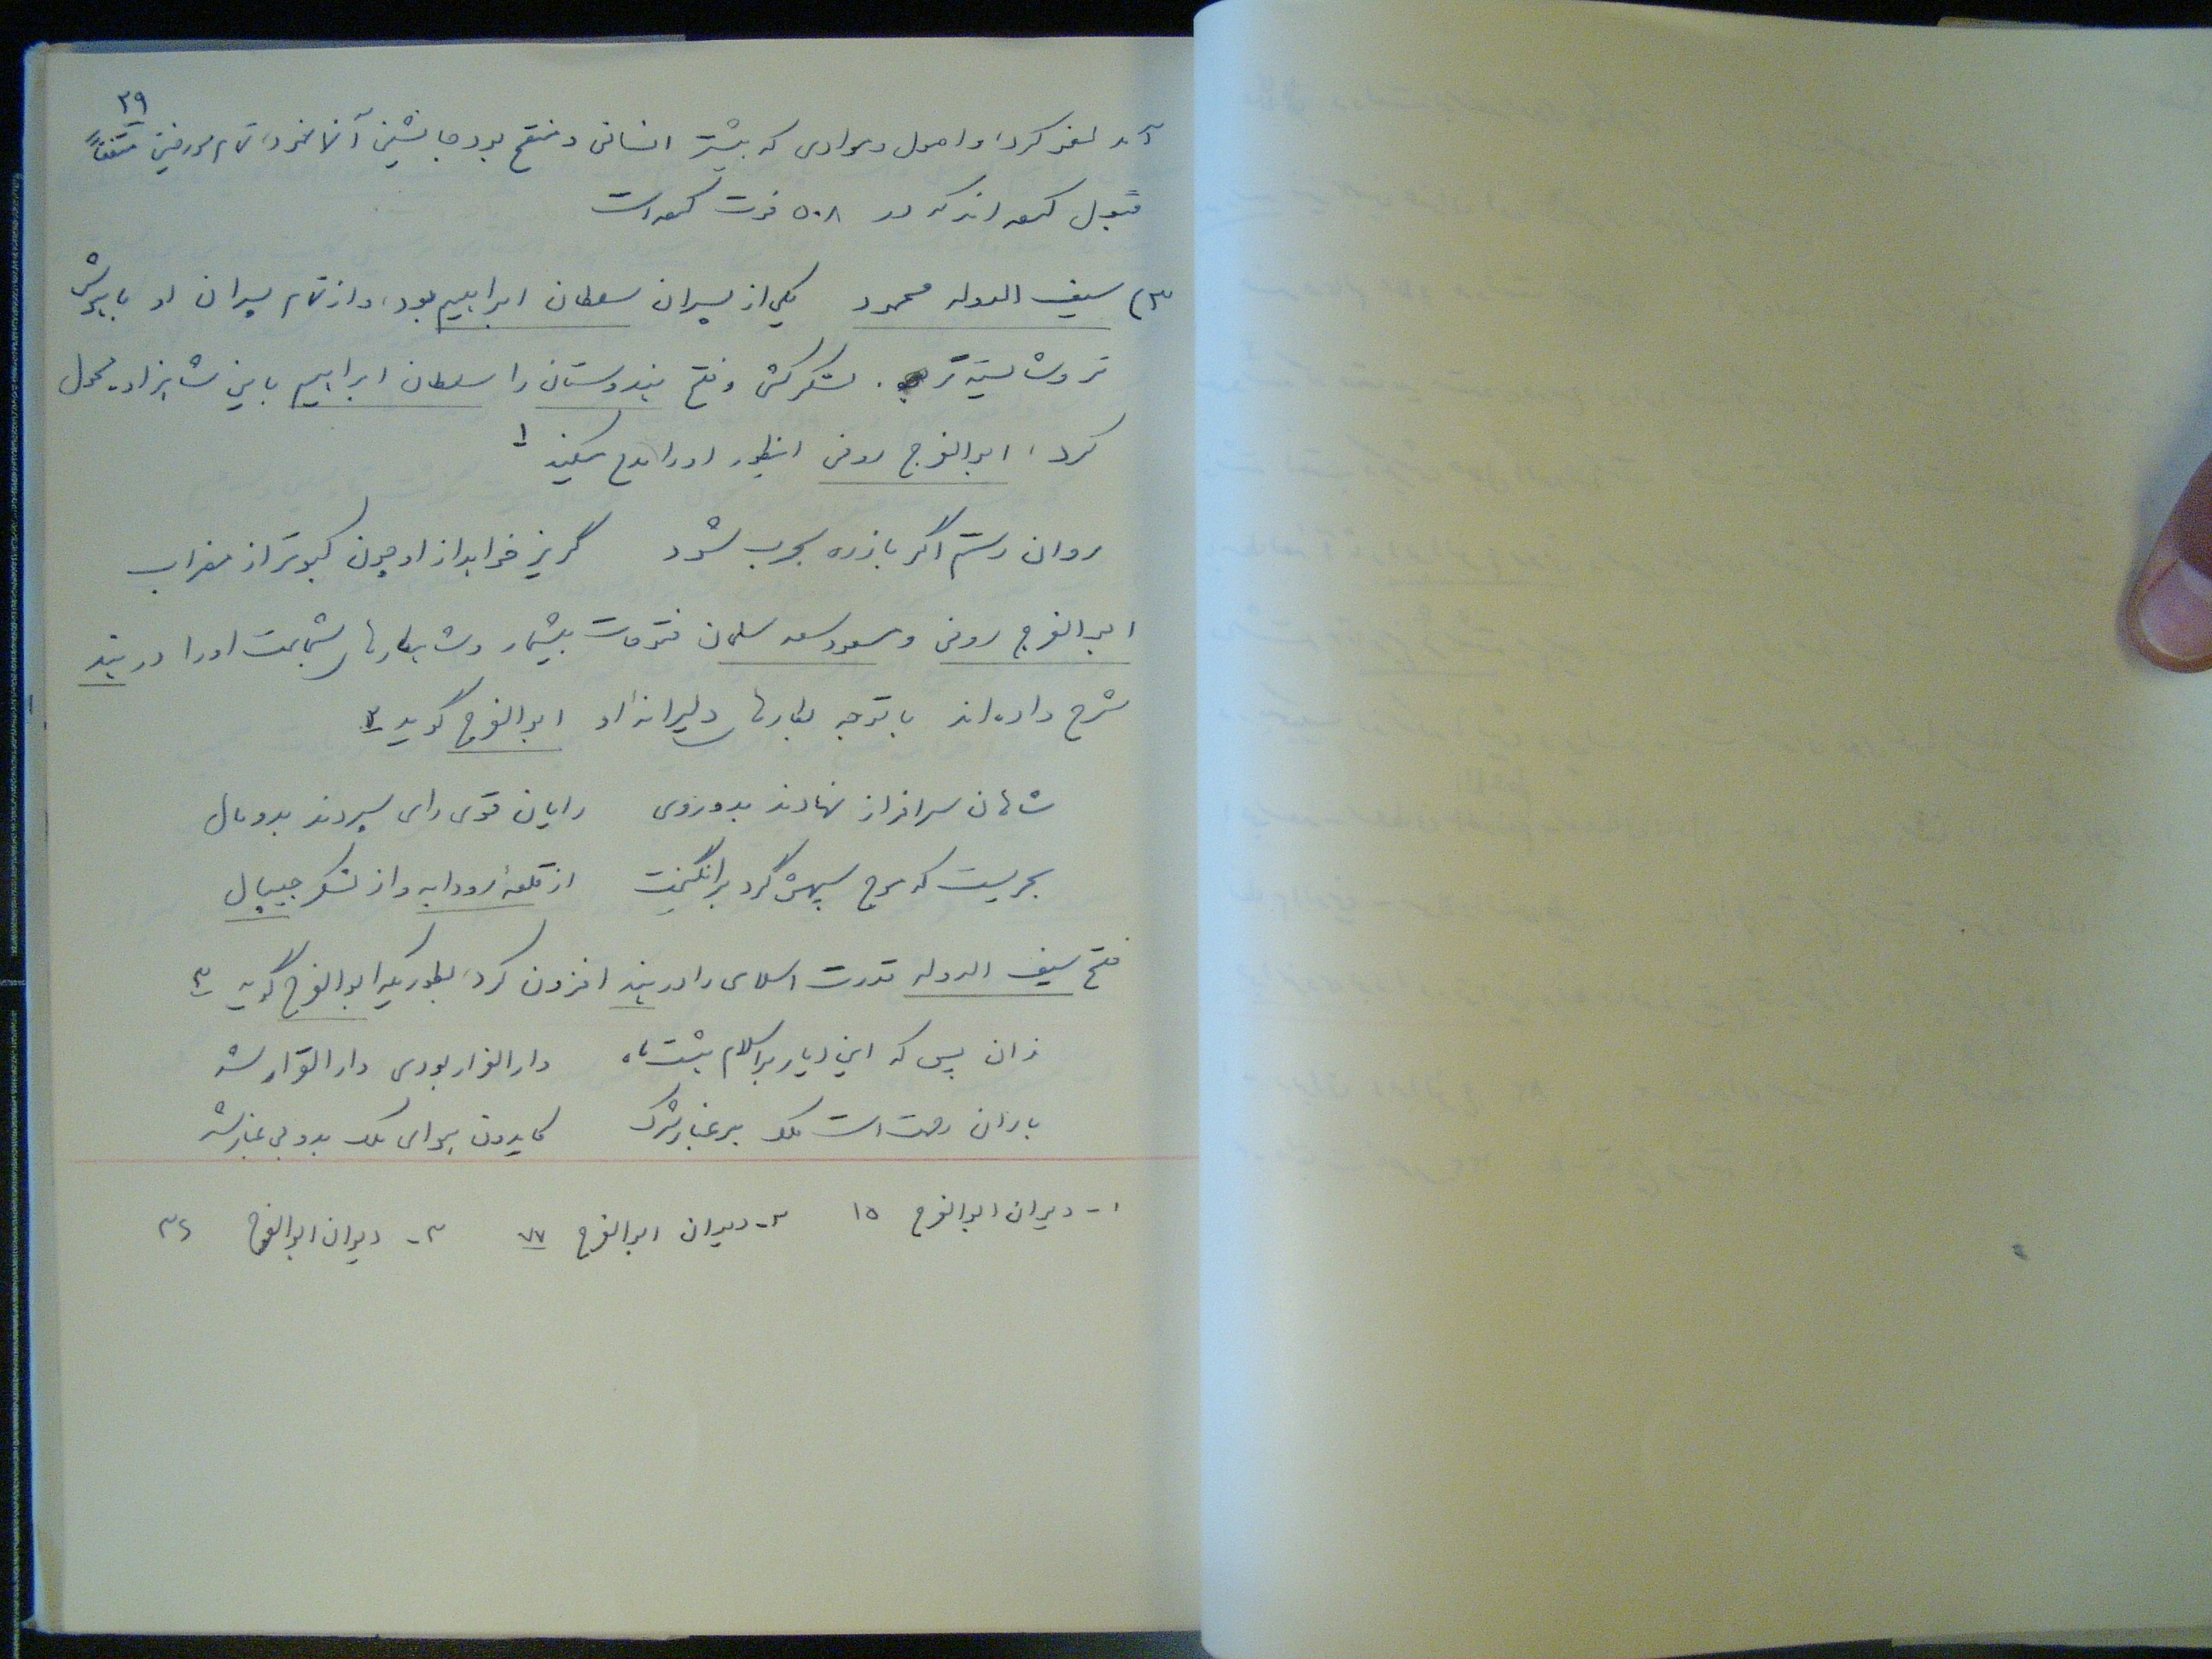 ۲۹
آمد لغو کرد، و اصول و موادی که بیشتر انسانی و منتج بود جانشین آنها نمود، تمام مورخین متفقاً
قبول کرده‌اند که در ۵۰۸ فوت کرده است
۳) سیف الدوله محمود یکی از پسران سلطان ابراهیم بود، و از تمام پسران او با هوش
تر و شایسته تر بود. لشکرکشی و فتح هندوستان را سلطان ابراهیم باین شاهزاده محول
کرد، ابوالفرج رونی اینطور او را مدح میکند ۱
روان رستم اگر باز ره بحرب شود گریز خواهد از او چون کبوتر از مضراب
ابوالفرج رونی و مسعود سعد سلمان فتوحات بیشمار و شاهکارهای شجاعت او را در هند
شرح داده‌اند با توجه بکارهای دلیرانهٔ او ابوالفرج گوید ۲
شاهان سرافراز نهادند بدو روی رایان قوی رای سپردند بدو مال
بحریست که موج سپهش گرد برانگیخت از قلعهٔ رودابه و از لشکر جیپال
فتح سیف الدوله قدرت اسلامی را در هند افزون کرد، بطوریکه ابوالفرج گوید ۳
زان پس که این دیار بر اسلام بیشت ماه دار الفرار بودی دار القرار شد
باران رحمت است ملک بر غبار شرک کایدون هوای ملک بدو بی غبار شد
۱- دیوان ابوالفرج ۱۵ ۲- دیوان ابوالفرج ۷۷ ۳- دیوان ابوالفرج ۳۶